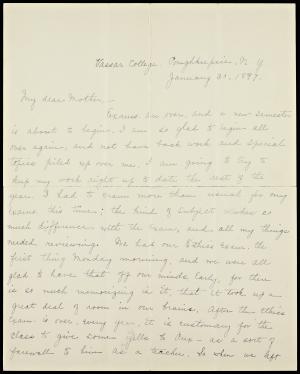 Vassar College. Poughkeepsie, N. Y
January 31. 1897.
My dear Mother,-
Exams are over, and a new semester
is about to begin. I am so glad to begin all
over again, and not have back work and special
topics piled up over me. I am going to try to
keep my work right up to date the rest of the
year. I had to cram more than usual for my
exams this time; the kind of subject makes so
much difference with the Exam, and all my things
needed reviewing. We had our Ethics Exam. the
first thing Monday morning, and we were all
glad to have that off our minds early, for there
is so much memorizing in it, that it took up a
great deal of room in our brains. After the Ethics
Exam. is over, every year, it is customary for the
class to give some yells to - as a sort of
farewell to him as a teacher. So when we left